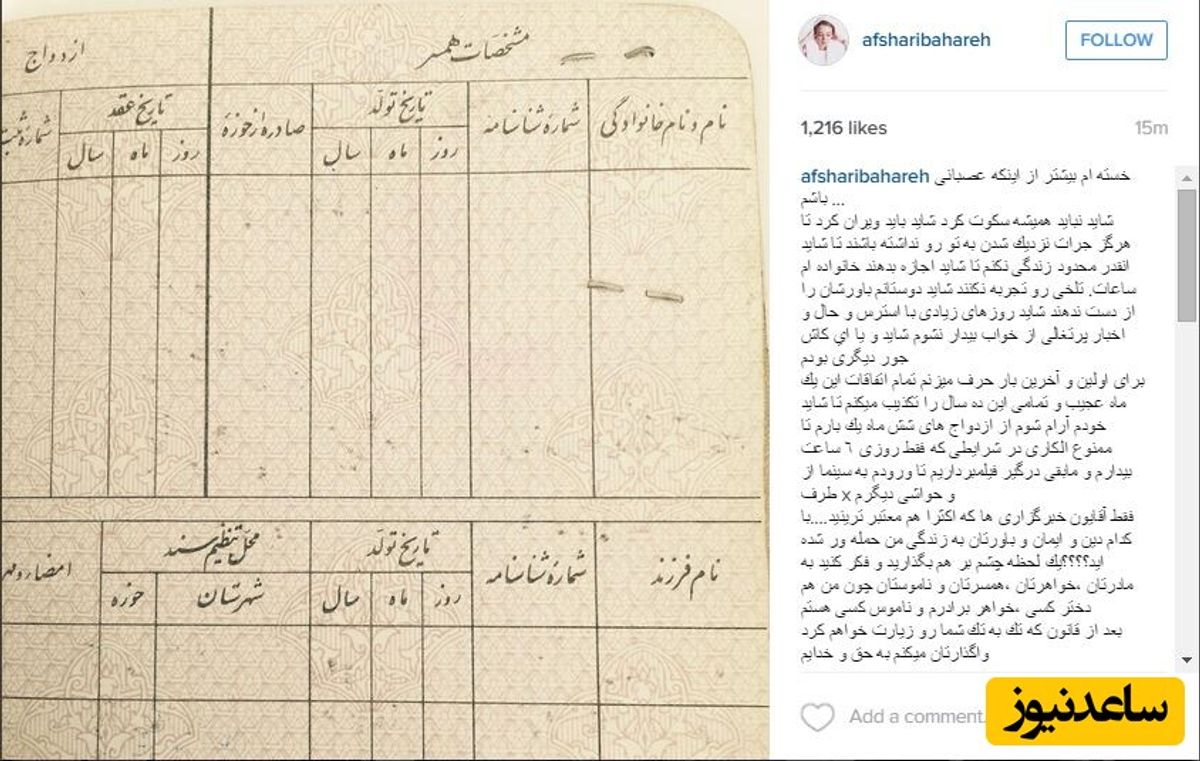 مشخصات همسر
ازدواج
نام و نام خانوادگی
شماره شناسنامه
تاریخ تولد
روز
ماه
سال
صادره از حوزه
تاریخ عقد
روز
ماه
سال
نام فرزند
شماره شناسنامه
تاریخ تولد
روز
ماه
سال
محل تنظیم سند
شهرستان
حوزه
afsharibahareh
FOLLOW
1,216 likes
15m
afsharibahareh خسته ام بیشتر از اینکه عصبانی
باشم ...
شاید نباید همیشه سکوت کرد شاید باید ویران کرد تا
هرگز جرات نزدیك شدن به تو رو نداشته باشند تا شاید
انقدر محدود زندگی نکنم تا شاید اجازه بدهند خانواده ام
ساعات. تلخی رو تجربه نکنند شاید دوستانم باورشان را
از دست ندهند شاید روزهای زیادی با استرس و حال و
اخبار پرتغالی از خواب بیدار نشوم شاید و یا اي کاش
جور دیگری بودم
برای اولین و آخرین بار حرف میزنم تمام اتفاقات این یك
ماه عجیب و تمامی این ده سال را تکذیب میکنم تا شاید
خودم آرام شوم از ازدواج های شش ماه یك بارم تا
ممنوع الکاری در شرایطی که فقط روزی ٦ ساعت
بیدارم و مابقی درگیر فیلمبرداریم تا ورودم به سینما از
طرف x و حواشی دیگرم
فقط آقایون خبرگزاری ها که اکثرا هم معتبر ترینید....با
کدام دین و ایمان و باورتان به زندگی من حمله ور شده
اید؟؟؟؟یك لحظه چشم بر هم بگذارید و فکر کنید به
مادرتان ،خواهرتان ،همسرتان و ناموستان چون من هم
دختر کسی ،خواهر برادرم و ناموس کسی هستم
بعد از قانون که تك به تك شما رو زیارت خواهم کرد
واگذارتان میکنم به حق و خدایم
Add a comment.
ساعدنیوز